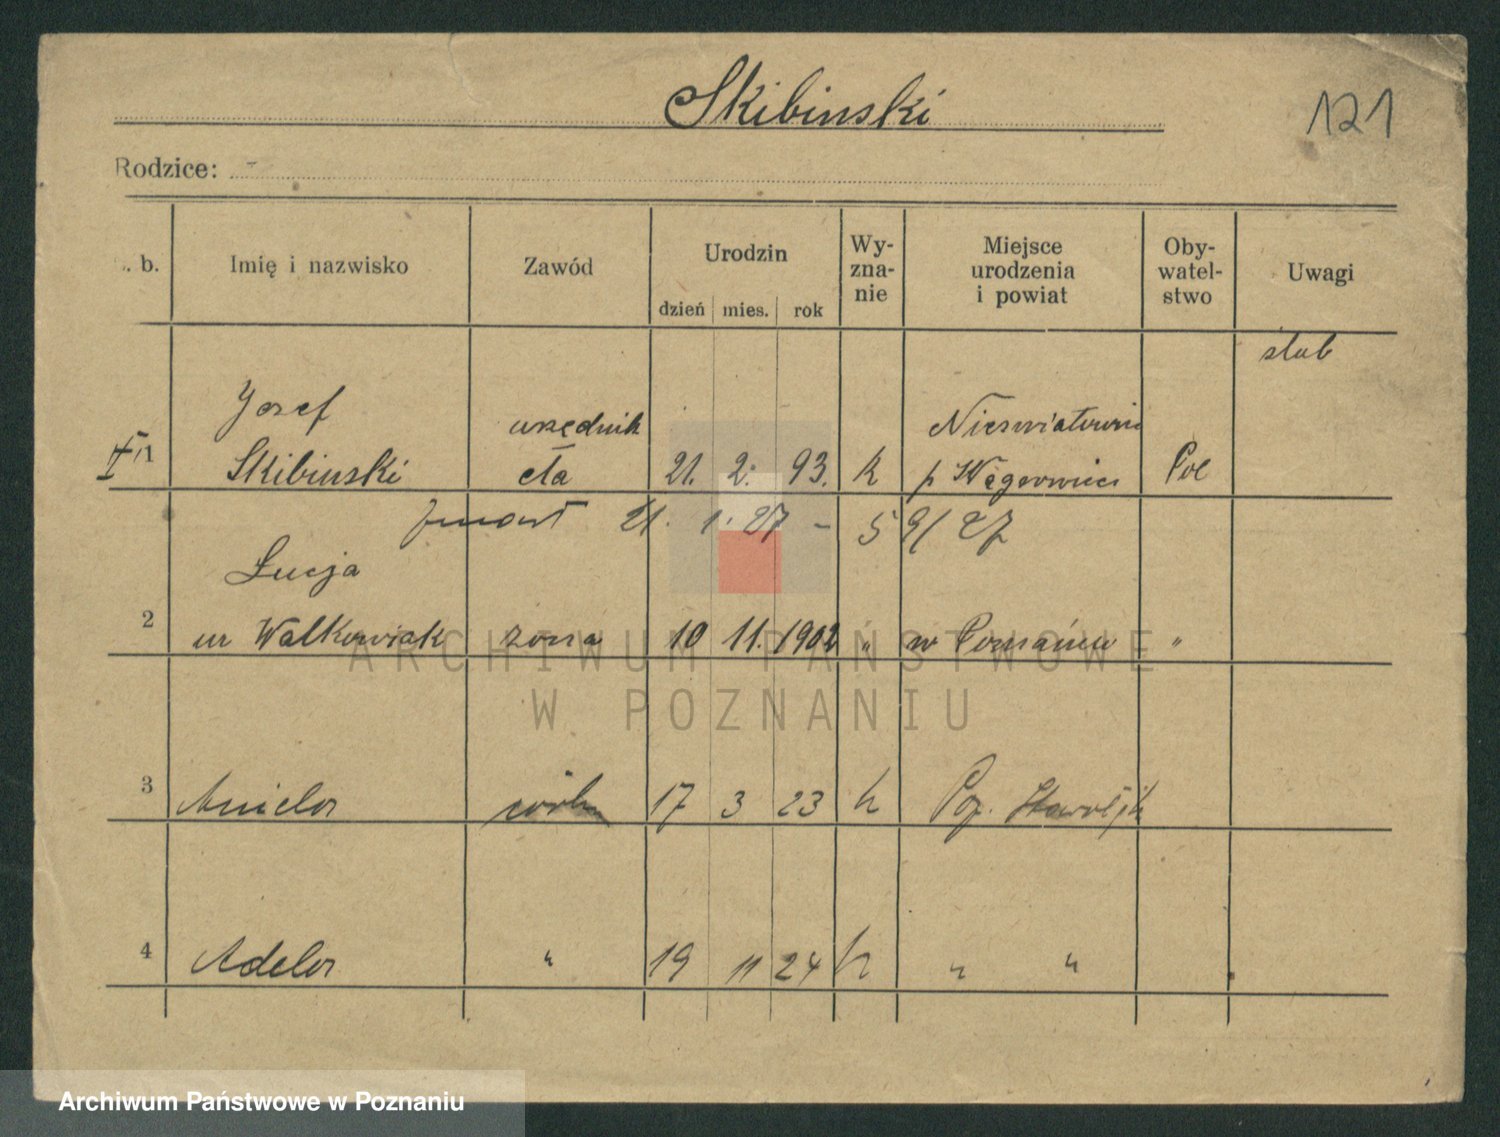 Skibinski
121
Rodzice: -
. b.
Imię i nazwisko
Zawód
Urodzin
dzień mies. rok
Wy-
zna-
nie
Miejsce
urodzenia
i powiat
Oby-
watel-
stwo
Uwagi
Józef
urzędnik
1 Skibinski cła 21. 2. 93. k p Pol
zmarł 21. 1. 27 - 5 9/27
Lucja
2 ur Walkowiak żona 10 11. 1902 " w Poznaniu "
3 Aniela córka 17 3 23 k Poz.
4 Adela " 19 11 24 k " "
ARCHIWUM PAŃSTWOWE
W POZNANIU
Archiwum Państwowe w Poznaniu